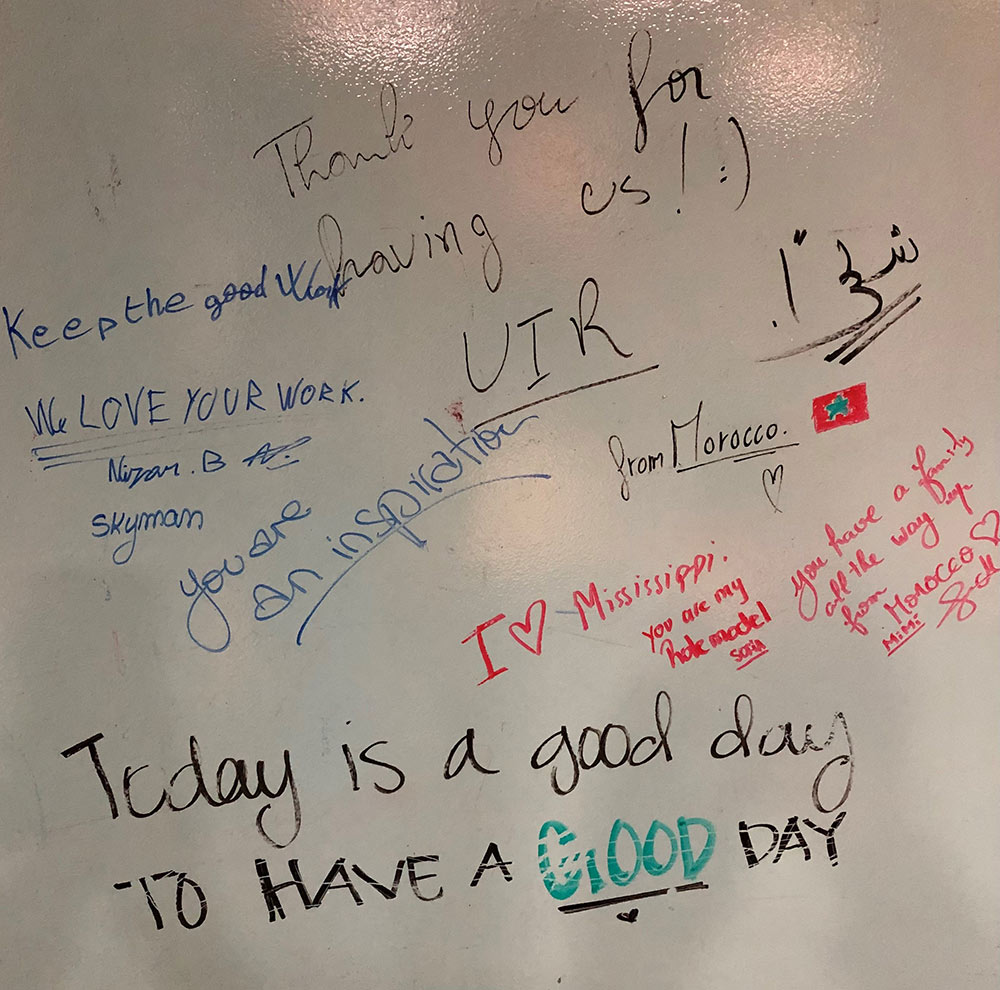 Thank you for
having us! :)
Keep the good Work
UIR
شكرًا.
WE LOVE YOUR WORK.
from Morocco.
Nizar. B
skyman
you are
an inspiration
I ♡ Mississippi.
you are my
Role model
SOFIA
you have a family
all the way Deep
from MOROCCO ♡
MiMi
Today is a good day
TO HAVE A GOOD DAY